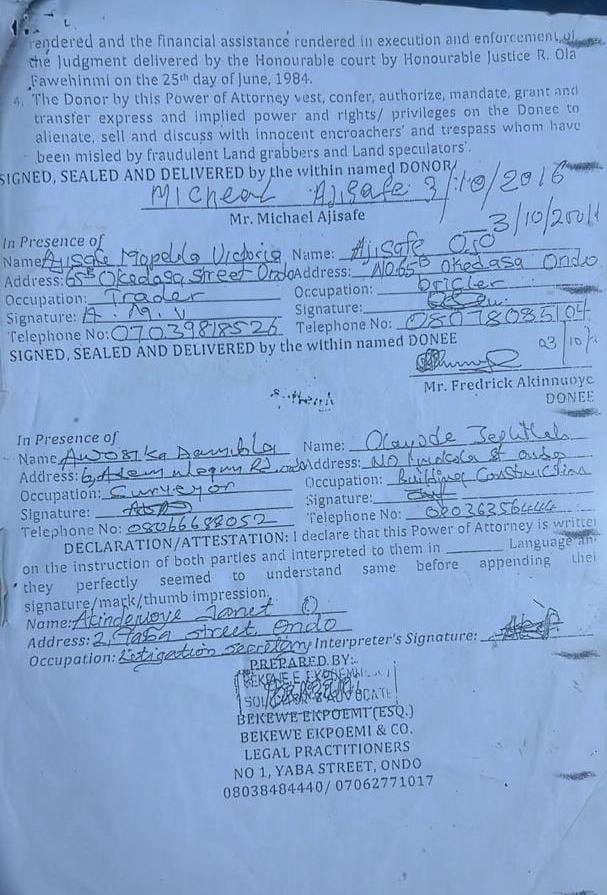 rendered and the financial assistance rendered in execution and enforcement of
the Judgment delivered by the Honourable court by Honourable Justice R. Ola
Fawehinmi on the 25th day of June, 1984.
4. The Donor by this Power of Attorney vest, confer, authorize, mandate, grant and
transfer express and implied power and rights/ privileges on the Donee to
alienate, sell and discuss with innocent encroachers' and trespass whom have
been misled by fraudulent Land grabbers and Land speculators'.
SIGNED, SEALED AND DELIVERED by the within named DONOR
Micheal Ajisafe 3/10/2016
Mr. Michael Ajisafe
3/10/2016
In Presence of
Name: Ajisafe Victoria Name: Ajisafe Ojo
Address: 65B Okedasa Street Ondo Address: NO 65B Okedasa Ondo
Occupation: Trader Occupation: bricler
Signature: A. M. V Signature:
Telephone No: 07039818526 Telephone No: 08078085104
SIGNED, SEALED AND DELIVERED by the within named DONEE
03/10/
Mr. Fredrick Akinnuoye
DONEE
In Presence of
Name Name:
Address: Address: NO St ondo
Occupation: Surveyor Occupation: Building Construction
Signature: Signature:
Telephone No: 08066688052 Telephone No:
DECLARATION/ATTESTATION: I declare that this Power of Attorney is written
on the instruction of both parties and interpreted to them in ______ Language an
they perfectly seemed to understand same before appending thei
signature/mark/thumb impression.
Name: Janet O
Address: 2, Yaba Street, Ondo
Occupation: Litigation Secretary Interpreter's Signature:
PREPARED BY:
BEKEWE EKPOEMI (ESQ.)
BEKEWE EKPOEMI & CO.
LEGAL PRACTITIONERS
NO 1, YABA STREET, ONDO
08038484440/ 07062771017